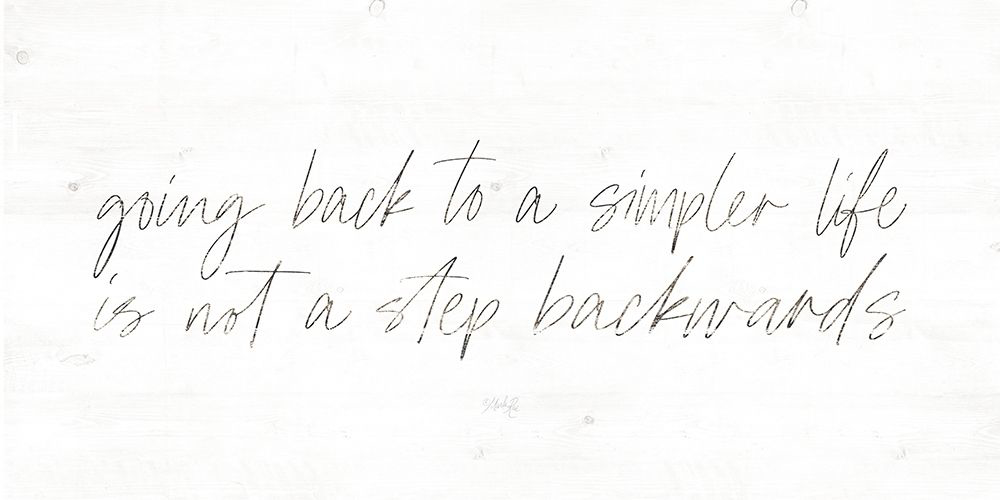 going back to a simpler life
is not a step backwards
©Marla Rae